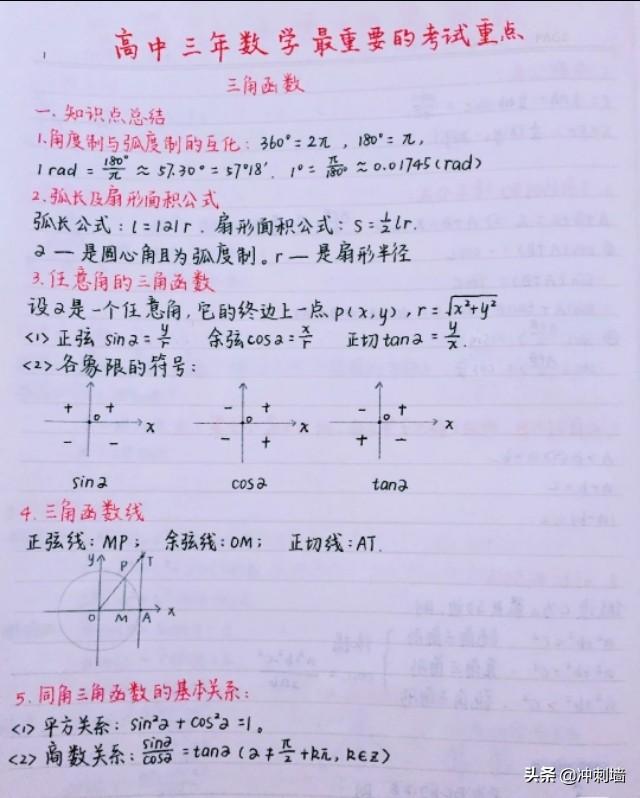 高中三年数学最重要的考试重点
三角函数
一.知识点总结
1.角度制与弧度制的互化: 360°=2π , 180°=π,
1rad = 180°/π ≈ 57.30° = 57°18′. 1° = π/180° ≈ 0.01745(rad)
2.弧长及扇形面积公式
弧长公式: l=|2|r . 扇形面积公式: S=½lr.
2 — 是圆心角且为弧度制。r — 是扇形半径
3.任意角的三角函数
设2是一个任意角,它的终边上一点 p(x,y) , r=√x²+y²
<1> 正弦 sin2=y/r 余弦cos2=x/r 正切tan2=y/x.
<2> 各象限的符号:
+ + - + - +
o x o x o x
- - - + + -
sin2 cos2 tan2
4.三角函数线
正弦线: MP; 余弦线: OM; 正切线: AT.
y P T
O M A x
5.同角三角函数的基本关系:
<1> 平方关系: sin²2+cos²2=1。
<2> 商数关系: sin2/cos2=tan2 (2≠π/2+kπ, k∈z)
头条 @冲刺墙